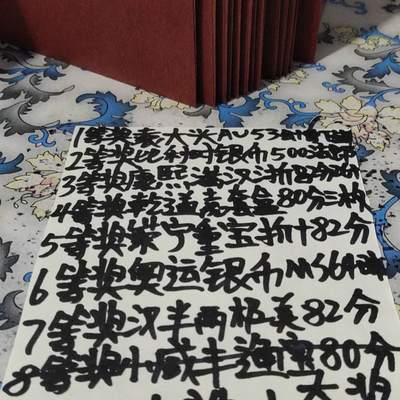 1等奖袁大头AU53
2等奖比利时银币500法郎
3等奖康熙满汉浙82分
4等奖乾道嘉套盒80分三枚
5等奖崇宁重宝折十82分
6等奖奥运银币MS69
7等奖汉半两极美82分
8等奖小咸丰通宝80分
大奖